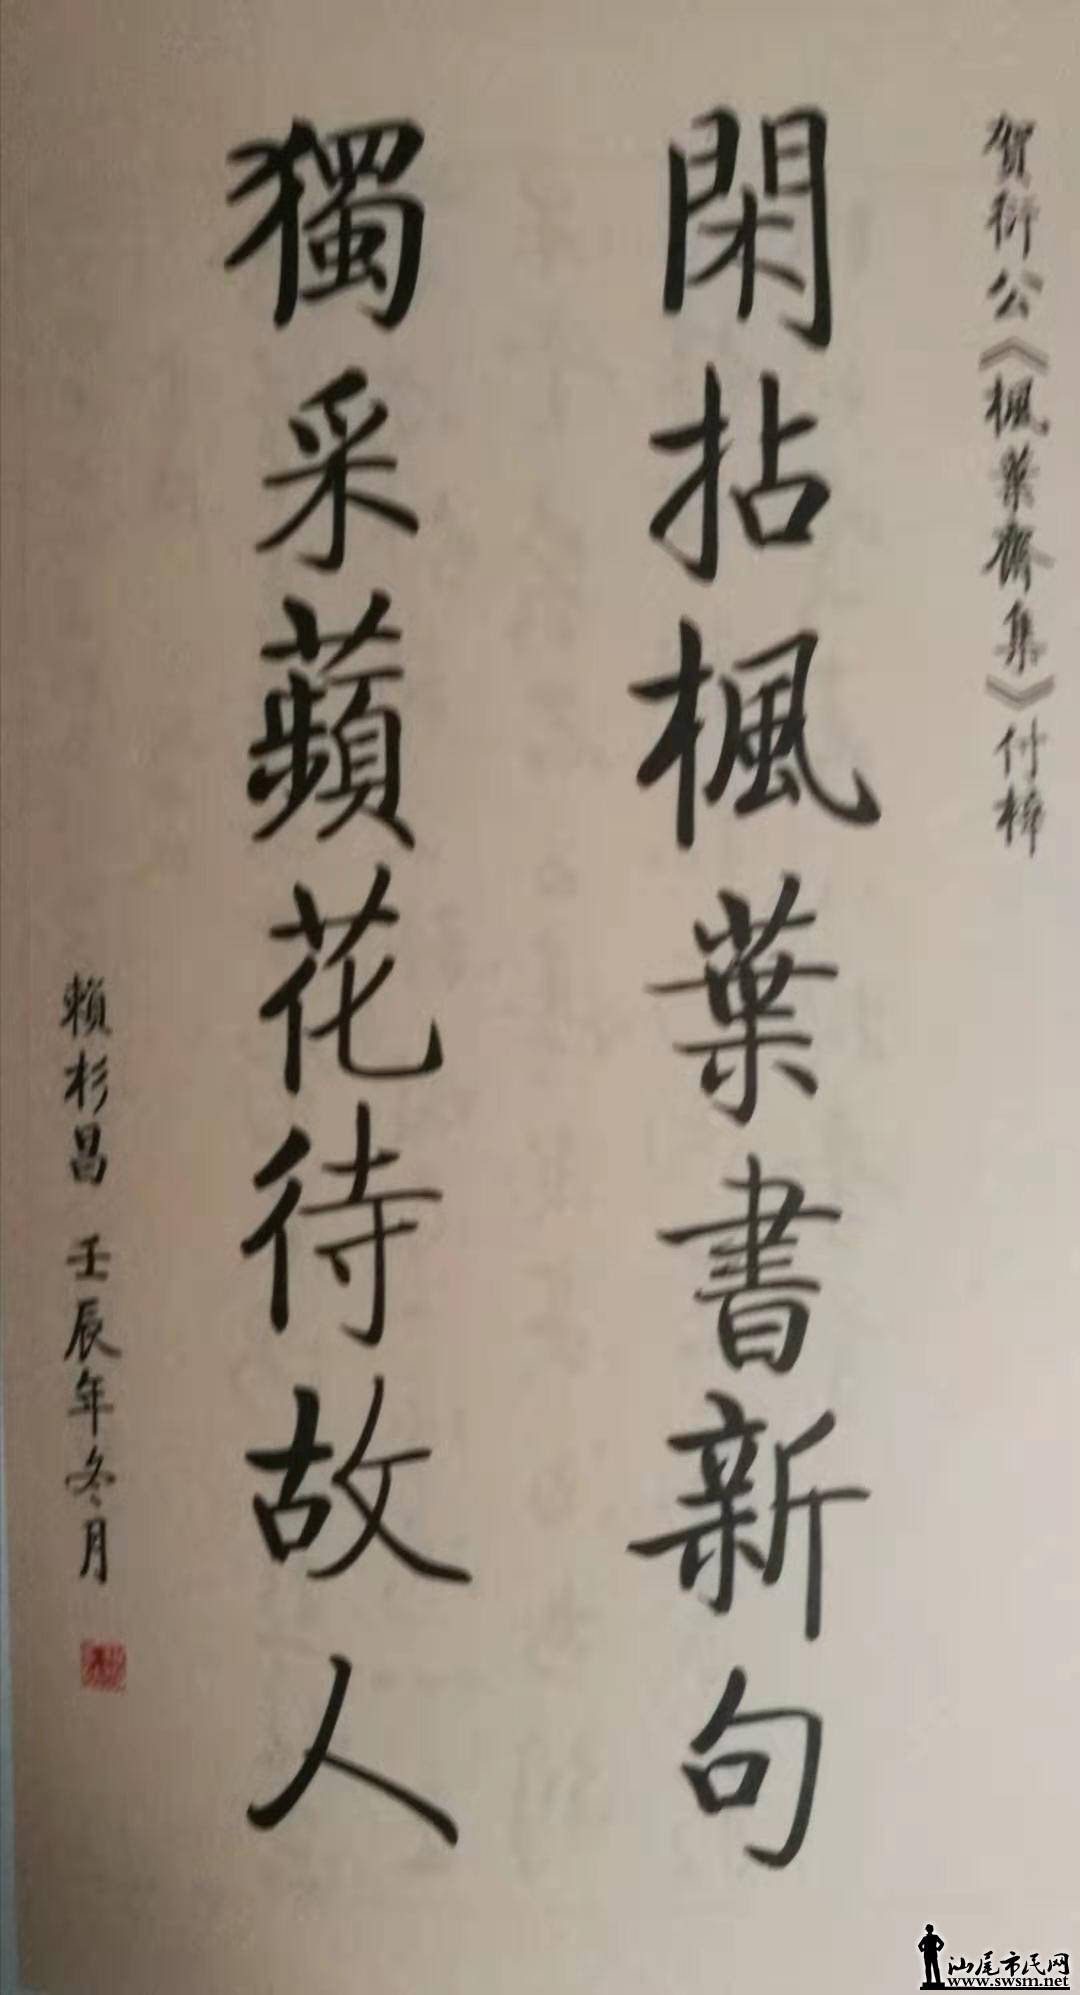 賀衍公《楓葉齋集》付梓
閑拈楓葉書新句
獨采蘋花待故人
賴杉昌 壬辰年冬月
汕尾市民网
www.swsm.net